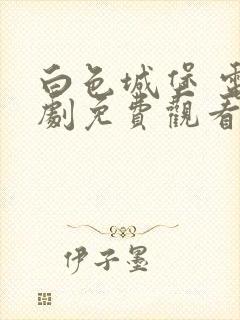 白色城堡 電
劇免費觀看
伊子墨